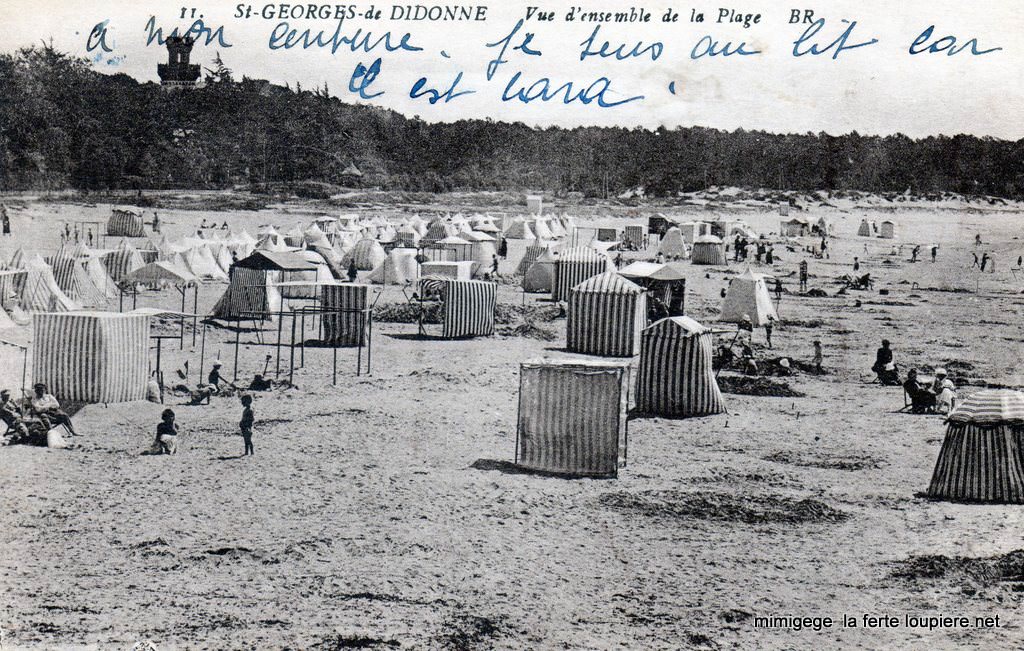 11. St-GEORGES-de DIDONNE Vue d'ensemble de la Plage BR
à mon ceinture. Je suis au lit car
il est tard.
mimigege la ferte loupiere.net